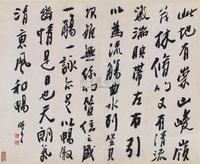 此地有崇山峻嶺
茂林修竹又有清流
激湍映帶左右引
以為流觴曲水列坐其
次雖無絲竹管弦之盛
一觴一詠亦足以暢敘
幽情是日也天朗氣
清惠風和暢